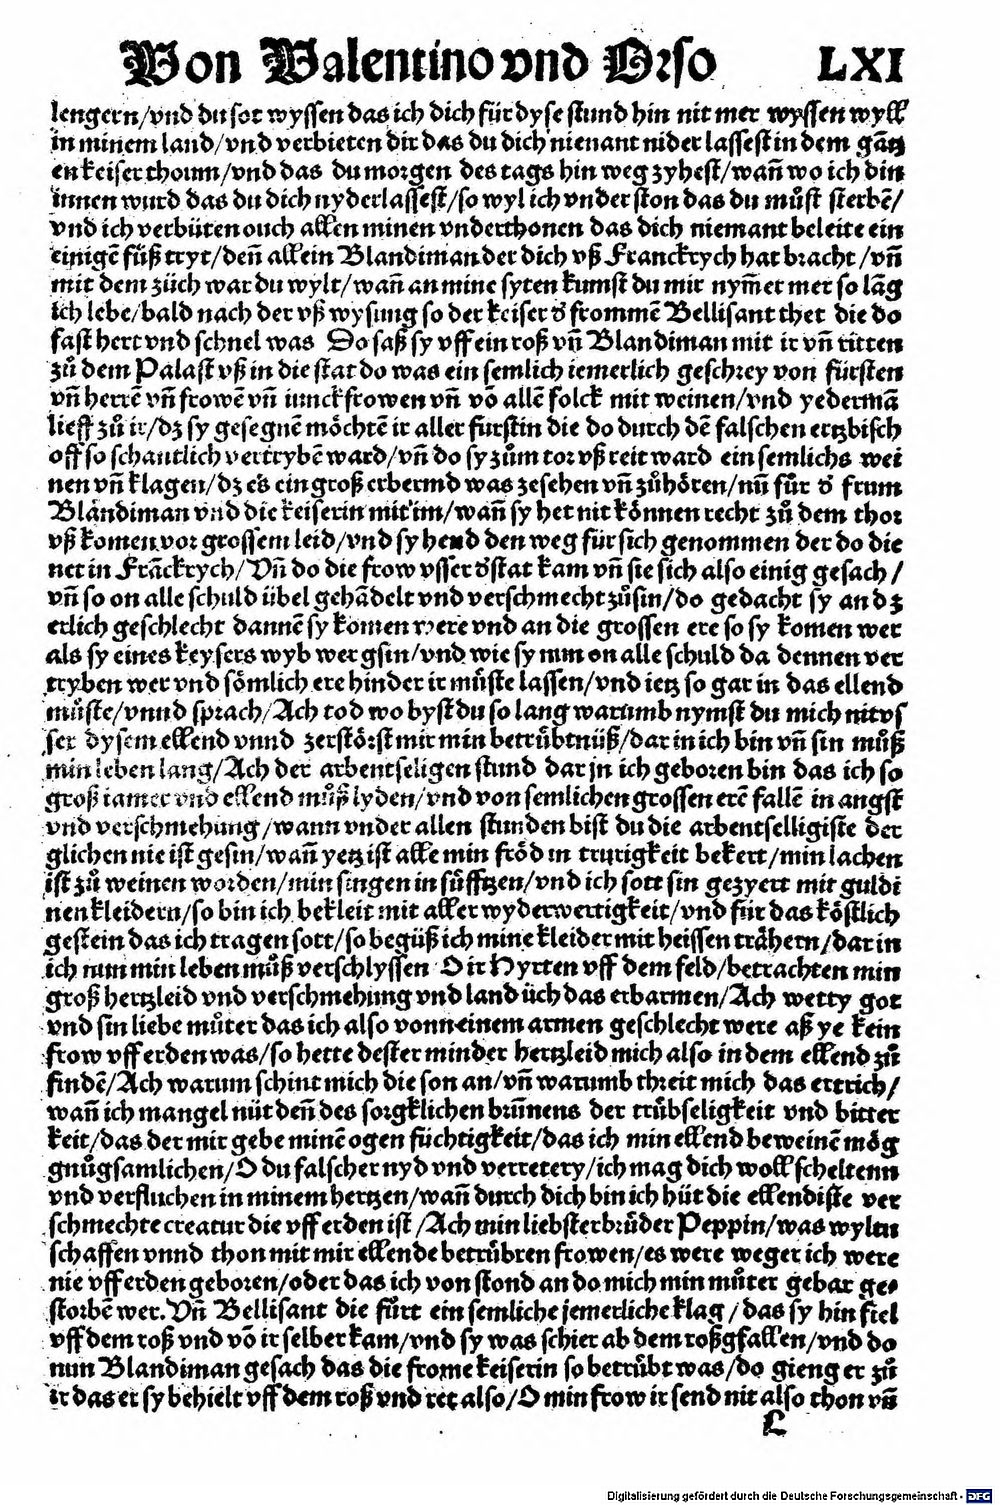 Von Valentino vnd Orso LXI
lengern/vnd du sot wyssen das ich dich für dyse stund hin nit mer wyssen wyll
in minem land/vnd verbieten dir das du dich nienant nider lassest in dem gātz
en keiserthoum/vnd das du morgen des tags hin weg zyhest/wañ wo ich din
innen wurd das du dich nyderlassest/so wyl ich vnderston das du můst sterbē/
vnd ich verbüten ouch allen minen vnderthonen das dich niemant beleite ein
einigē fůß tryt/deñ allein Blandiman der dich vß Franckrych hat bracht/vñ
mit dem züch war du wylt/wañ an mine syten kumst du mir nym̄er mer so lāg
ich lebe/bald nach der vß wysung so der keiser d' frommē Bellisant thet die do
fast hert vnd schnel was Do saß sy vff ein roß vñ Blandiman mit ir vñ ritten
zů dem Palast vß in die stat do was ein semlich iemerlich geschrey von fürsten
vñ herrē vñ frowē vñ iunckfrowen vñ vō allē folck mit weinen/vnd yedermā
lieff zů ir/dz sy gesegnē möchtē ir aller fürstin die do durch dē falschen ertzbisch
off so schantlich vertrybē ward/vñ do sy zům tor vß reit ward ein semlichs wei
nen vñ klagen/dz es ein groß erbermd was zesehen vñ zůhören/nū fůr d' frum
Blandiman vnd die keiserin mit im/wañ sy het nit können recht zů dem thor
vß komen vor grossem leid/vnd sy hend den weg für sich genommen der do die
net in Frāckrych/Vñ do die frow vsser d'stat kam vñ sie sich also einig gesach/
vñ so on alle schuld übel gehādelt vnd verschmecht zůsin/do gedacht sy an dz
erlich geschlecht dannē sy komen were vnd an die grossen ere so sy komen wer
als sy eines keysers wyb wer gsin/vnd wie sy nun on alle schuld da dennen ver
tryben wer vnd sömlich ere hinder ir můste lassen/vnd ietz so gar in das ellend
můste/vnnd sprach/Ach tod wo byst du so lang warumb nymst du mich nit vs
ser dysem ellend vnnd zerstörst mir min betrübtnüß/dar in ich bin vñ sin můß
min leben lang/Ach der arbentseligen stund dar jn ich geboren bin das ich so
groß iamer vnd ellend můß lyden/vnd von semlichen grossen erē fallē in angst
vnd verschmehung/wann vnder allen stunden bist du die arbentselligiste der
glichen nie ist gesin/wañ yetz ist alle min fröd in trurigkeit bekert/min lachen
ist zů weinen worden/min singen in sůfftzen/vnd ich sott sin gezyert mit guldi
nen kleidern/so bin ich bekleit mit aller wyderwertigkeit/vnd für das köstlich
gestein das ich tragen sott/so begüß ich mine kleider mit heissen trähern/dar in
ich nun min leben můß verschlyssen O ir Hyrten vff dem feld/betrachten min
groß hertzleid vnd verschmehung vnd land üch das erbarmen/Ach wetty got
vnd sin liebe můter das ich also vonn einem armen geschlecht were aß ye kein
frow vff erden was/so hette dester minder hertzleid mich also in dem ellend zů
findē/Ach warum schint mich die son an/vñ warumb threit mich das ertrich/
wañ ich mangel nüt deñ des sorgklichen brūnens der trübseligkeit vnd bitter
keit/das der mir gebe minē ogen füchtigkeit/das ich min ellend beweinē mög
gnůgsamlichen/O du falscher nyd vnd verretery/ich mag dich woll scheltenn
vnd verfluchen in minem hertzen/wañ durch dich bin ich hüt die ellendiste ver
schmechte creatur die vff erden ist/Ach min liebster brůder Peppin/was wyltu
schaffen vnnd thon mit mir ellende betrübten frowen/es were weger ich were
nie vff erden geboren/oder das ich von stond an do mich min můter gebar ge
storbē wer. Vñ Bellisant die fůrt ein semliche jemerliche klag/das sy hin fiel
vff dem roß vnd vō ir selber kam/vnd sy was schier ab dem roß gfallen/vnd do
nun Blandiman gesach das die frome keiserin so betrübt was/do gieng er zů
ir das er sy behielt vff dem roß vnd ret also/O min frow ir send nit also thon vñ
L
Digitalisierung gefördert durch die Deutsche Forschungsgemeinschaft - DFG